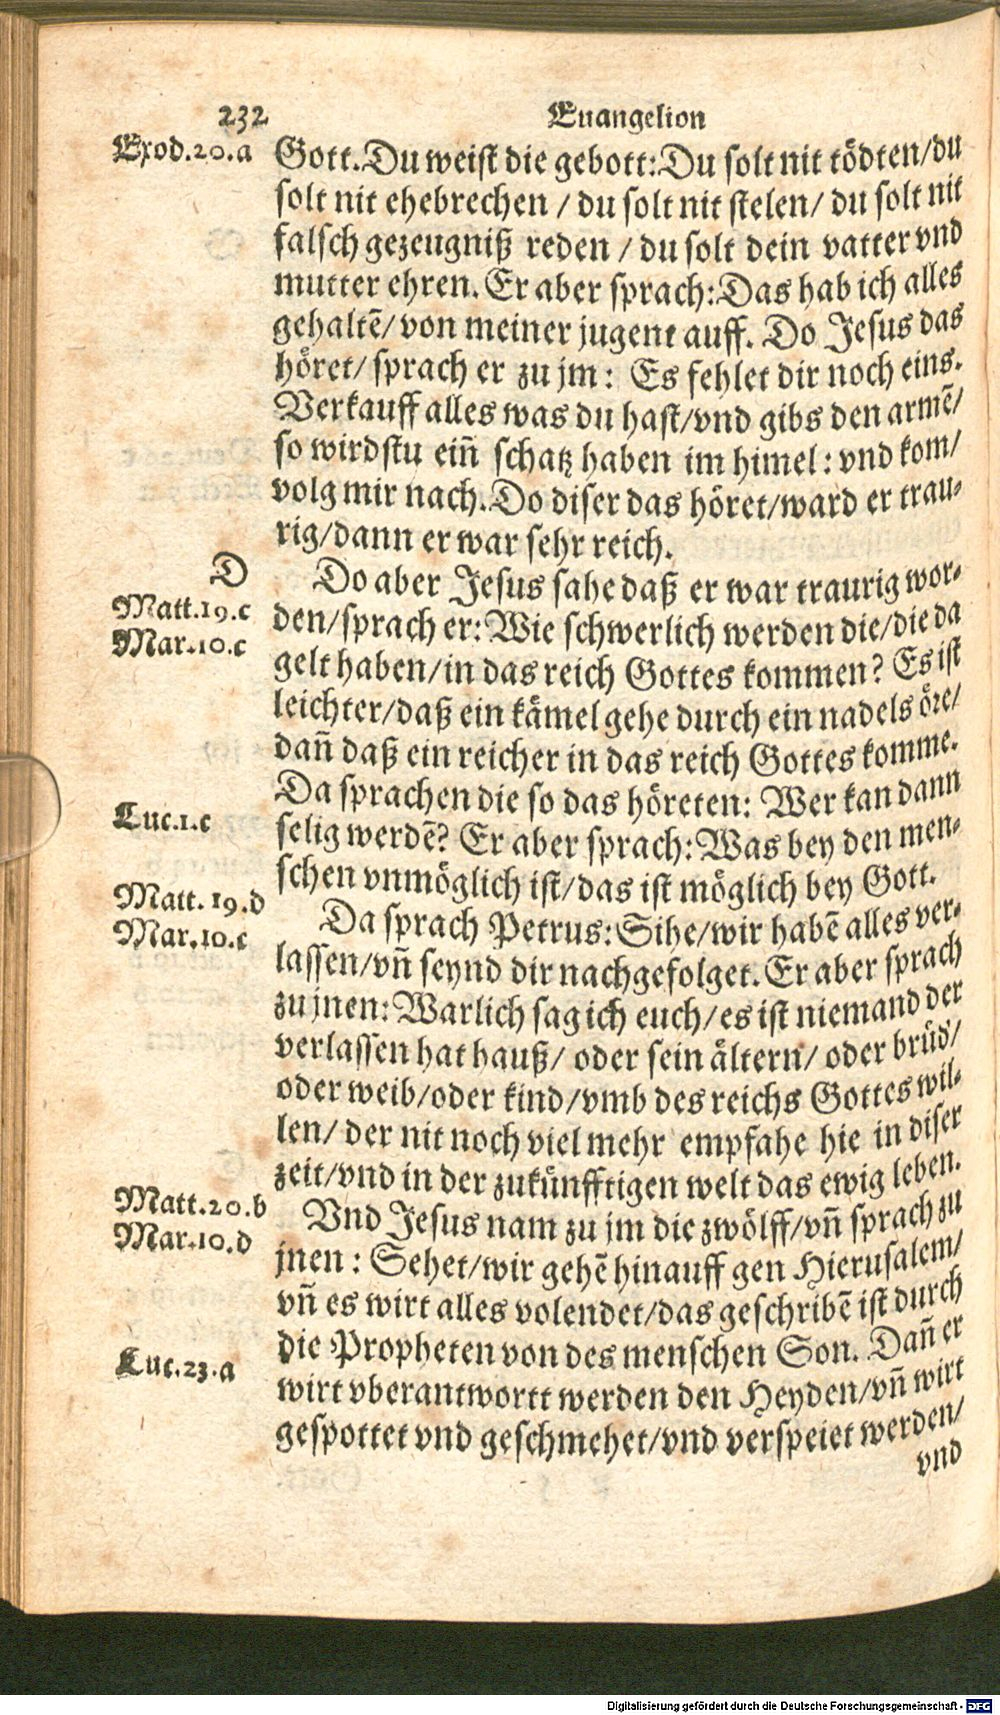 232 Euangelion
Exod.20.a
Gott. Du weist die gebott: Du solt nit tödten/du
solt nit ehebrechen / du solt nit stelen/ du solt nit
falsch gezeugniß reden / du solt dein vatter vnd
mutter ehren. Er aber sprach: Das hab ich alles
gehaltē/ von meiner jugent auff. Do Jesus das
höret/ sprach er zu jm: Es fehlet dir noch eins.
Verkauff alles was du hast/vnd gibs den armē/
so wirdstu eiñ schatz haben im himel: vnd kom/
volg mir nach. Do diser das höret/ward er trau-
rig/dann er war sehr reich.
D
Matt.19.c
Mar.10.c
Do aber Jesus sahe daß er war traurig wor-
den/sprach er: Wie schwerlich werden die/die da
gelt haben/in das reich Gottes kommen? Es ist
leichter/daß ein kämel gehe durch ein nadels öre/
dañ daß ein reicher in das reich Gottes komme.
Da sprachen die so das höreten: Wer kan dann
Luc.1.c
selig werdē? Er aber sprach: Was bey den men-
schen vnmöglich ist/das ist möglich bey Gott.
Matt.19.d
Mar.10.c
Da sprach Petrus: Sihe/wir habē alles ver-
lassen/vñ seynd dir nachgefolget. Er aber sprach
zu jnen: Warlich sag ich euch/es ist niemand der
verlassen hat hauß/ oder sein ältern/ oder brüd'/
oder weib/oder kind/vmb des reichs Gottes wil-
len/ der nit noch viel mehr empfahe hie in diser
zeit/vnd in der zukünfftigen welt das ewig leben.
Matt.20.b
Mar.10.d
Vnd Jesus nam zu jm die zwölff/vñ sprach zu
jnen : Sehet/wir gehē hinauff gen Hierusalem/
vñ es wirt alles volendet/das geschribē ist durch
die Propheten von des menschen Son. Dañ er
Luc.23.a
wirt vberantwortt werden den Heyden/vñ wirt
gespottet vnd geschmehet/vnd verspeiet werden/
vnd
Digitalisierung gefördert durch die Deutsche Forschungsgemeinschaft - DFG